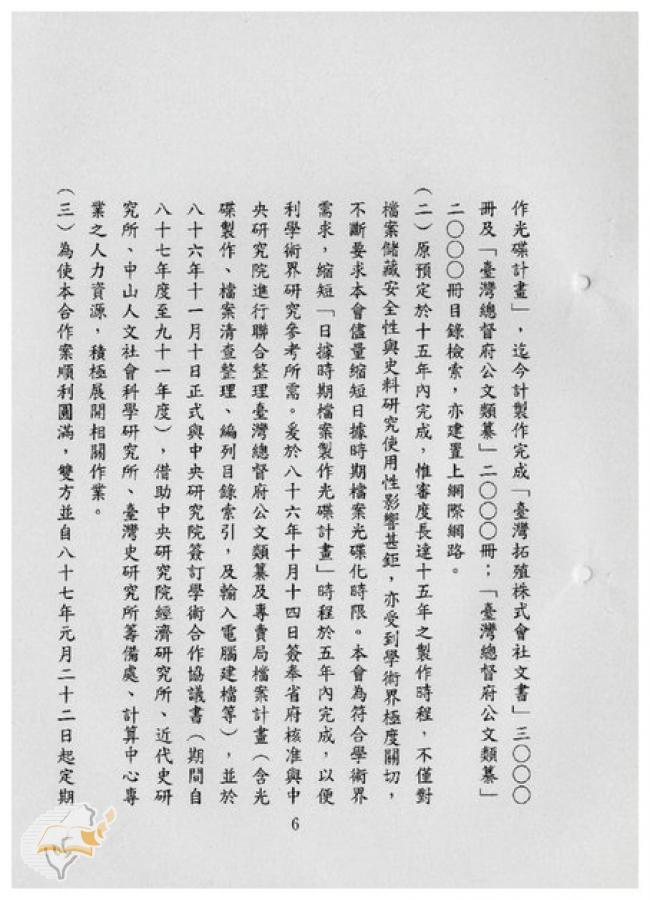 作光碟計畫」，迄今計製作完成「臺灣拓殖株式會社文書」三〇〇〇
冊及「臺灣總督府公文類纂」二〇〇〇冊；「臺灣總督府公文類纂」
二〇〇〇冊目錄檢索，亦建置上網際網路。
（二）原預定於十五年內完成，惟審度長達十五年之製作時程，不僅對
檔案儲藏安全性與史料研究使用性影響甚鉅，亦受到學術界極度關切，
不斷要求本會儘量縮短日據時期檔案光碟化時限。本會為符合學術界
需求，縮短「日據時期檔案製作光碟計畫」時程於五年內完成，以便
利學術界研究參考所需。爰於八十六年十月十四日簽奉省府核准與中
央研究院進行聯合整理臺灣總督府公文類纂及專賣局檔案計畫（含光
碟製作、檔案清查整理、編列目錄索引，及輸入電腦建檔等），並於
八十六年十一月十日正式與中央研究院簽訂學術合作協議書（期間自
八十七年度至九十一年度），借助中央研究院經濟研究所、近代史研
究所、中山人文社會科學研究所、臺灣史研究所籌備處、計算中心專
業之人力資源，積極展開相關作業。
（三）為使本合作案順利圓滿，雙方並自八十七年元月二十二日起定期
6